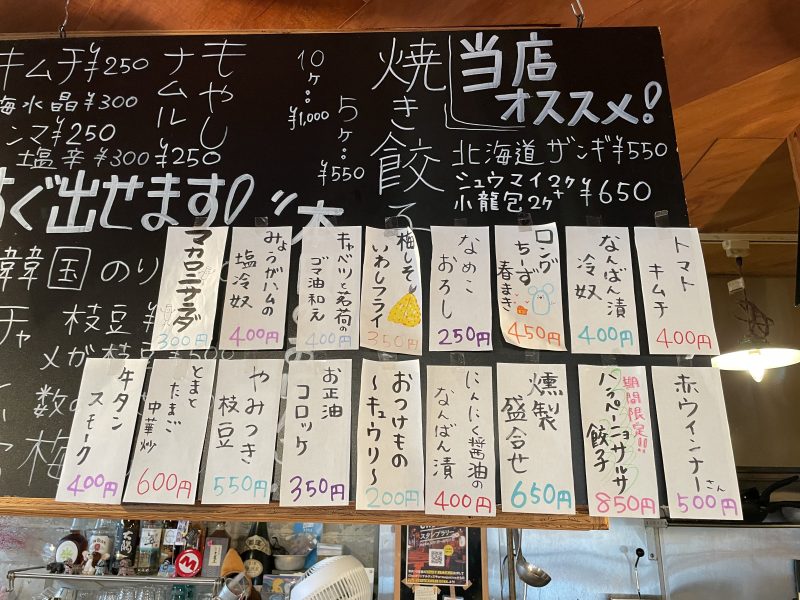 当店
オススメ!
北海道ザンギ¥550
シュウマイ2ケ
小龍包2ケ
¥650
焼き餃子
10ケ:
¥1,000
5ケ:
¥550
もやし
ナムル
¥250
キムチ¥250
海水晶¥300
¥250
塩辛¥300
ぐ出せます!
韓国のり
枝豆
メガ枝豆
トマト
キムチ
400円
なんばん漬
冷奴
400円
ロング
ちーず
春まき
450円
なめこ
おろし
250円
梅しそ
いわしフライ
350円
キャベツと茗荷の
ゴマ油和え
400円
みょうがハムの
塩冷奴
400円
マカロニサラダ
300円
赤ウインナーさん
500円
期間限定!!
ハラペーニョサルサ
餃子
850円
燻製
盛合せ
650円
にんにく醤油の
なんばん漬
400円
おつけもの
〜キュウリ〜
200円
お正油
コロッケ
350円
やみつき
枝豆
550円
とまと
たまご
中華炒
600円
牛タン
スモーク
400円
スタンプラリー